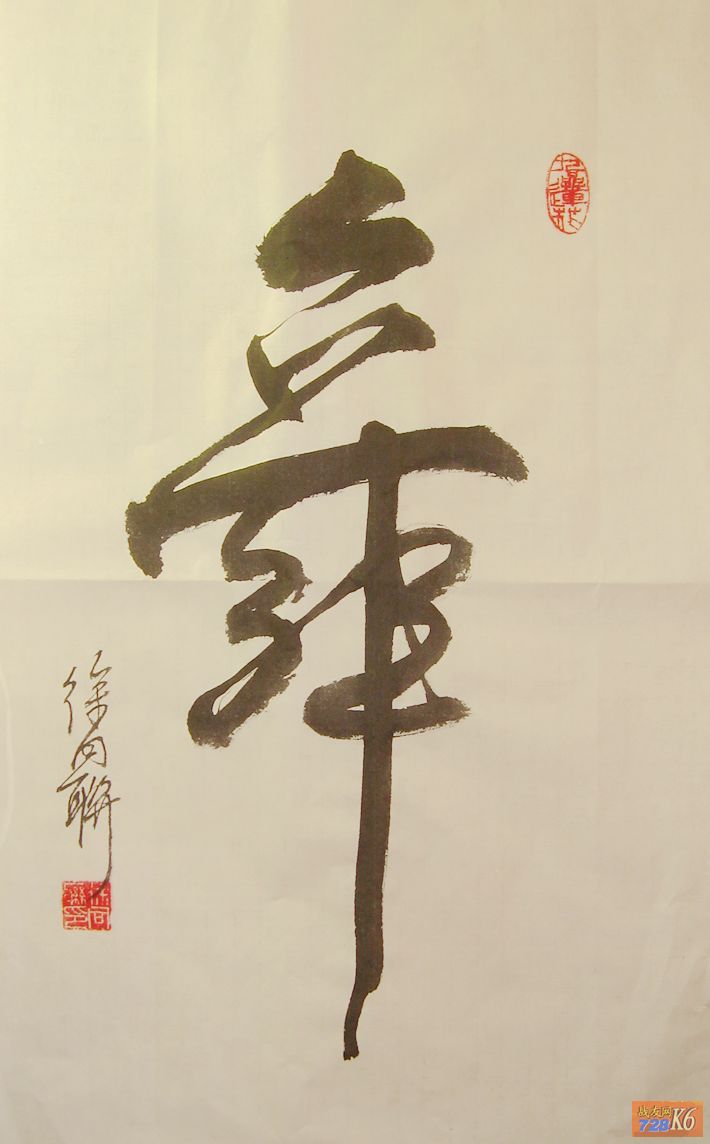 舞
徐向聯
战友网
728K6